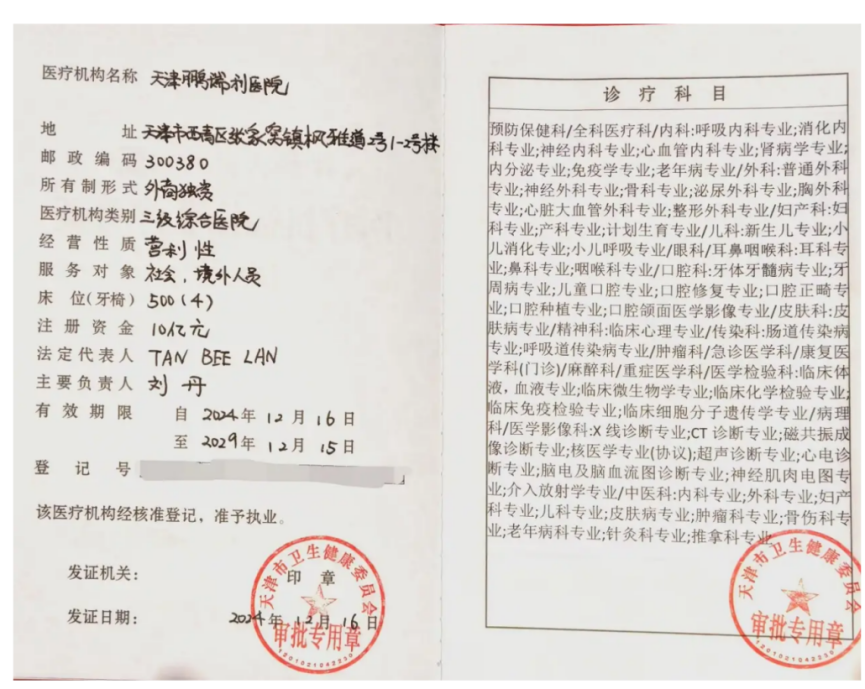 医疗机构名称 天津鹏瑞利医院
地 址 天津市西青区张家窝镇枫雅道2号1-2号楼
邮政编码 300380
所有制形式 外商独资
医疗机构类别 三级综合医院
经营性质 营利性
服务对象 社会,境外人员
床 位(牙椅) 500(4)
注册资金 10亿元
法定代表人 TAN BEE LAN
主要负责人 刘丹
有效期限 自 2024年 12月 16日
至 2029年 12月 15日
登记号
该医疗机构经核准登记,准予执业。
发证机关: 印 章
发证日期: 2024年 12月 16日
天津市卫生健康委员会
审批专用章
诊疗科目
预防保健科/全科医疗科/内科:呼吸内科专业;消化内
科专业;神经内科专业;心血管内科专业;肾病学专业;
内分泌专业;免疫学专业;老年病专业/外科:普通外科
专业;神经外科专业;骨科专业;泌尿外科专业;胸外科
专业;心脏大血管外科专业;整形外科专业/妇产科:妇
科专业;产科专业;计划生育专业/儿科:新生儿专业;小
儿消化专业;小儿呼吸专业/眼科/耳鼻咽喉科:耳科专
业;鼻科专业;咽喉科专业/口腔科:牙体牙髓病专业;牙
周病专业;儿童口腔专业;口腔修复专业;口腔正畸专
业;口腔种植专业;口腔颌面医学影像专业/皮肤科:皮
肤病专业/精神科:临床心理专业/传染科:肠道传染病
专业;呼吸道传染病专业/肿瘤科/急诊医学科/康复医
学科(门诊)/麻醉科/重症医学科/医学检验科:临床体
液,血液专业;临床微生物学专业;临床化学检验专业;
临床免疫检验专业;临床细胞分子遗传学专业/病理
科/医学影像科:X线诊断专业;CT诊断专业;磁共振成
像诊断专业;核医学专业(协议);超声诊断专业;心电诊
断专业;脑电及脑血流图诊断专业;神经肌肉电图专
业;介入放射学专业/中医科:内科专业;外科专业;妇产
科专业;儿科专业;皮肤病专业;肿瘤科专业;骨伤科专
业;老年病科专业;针灸科专业;推拿科专业
天津市卫生健康委员会
审批专用章